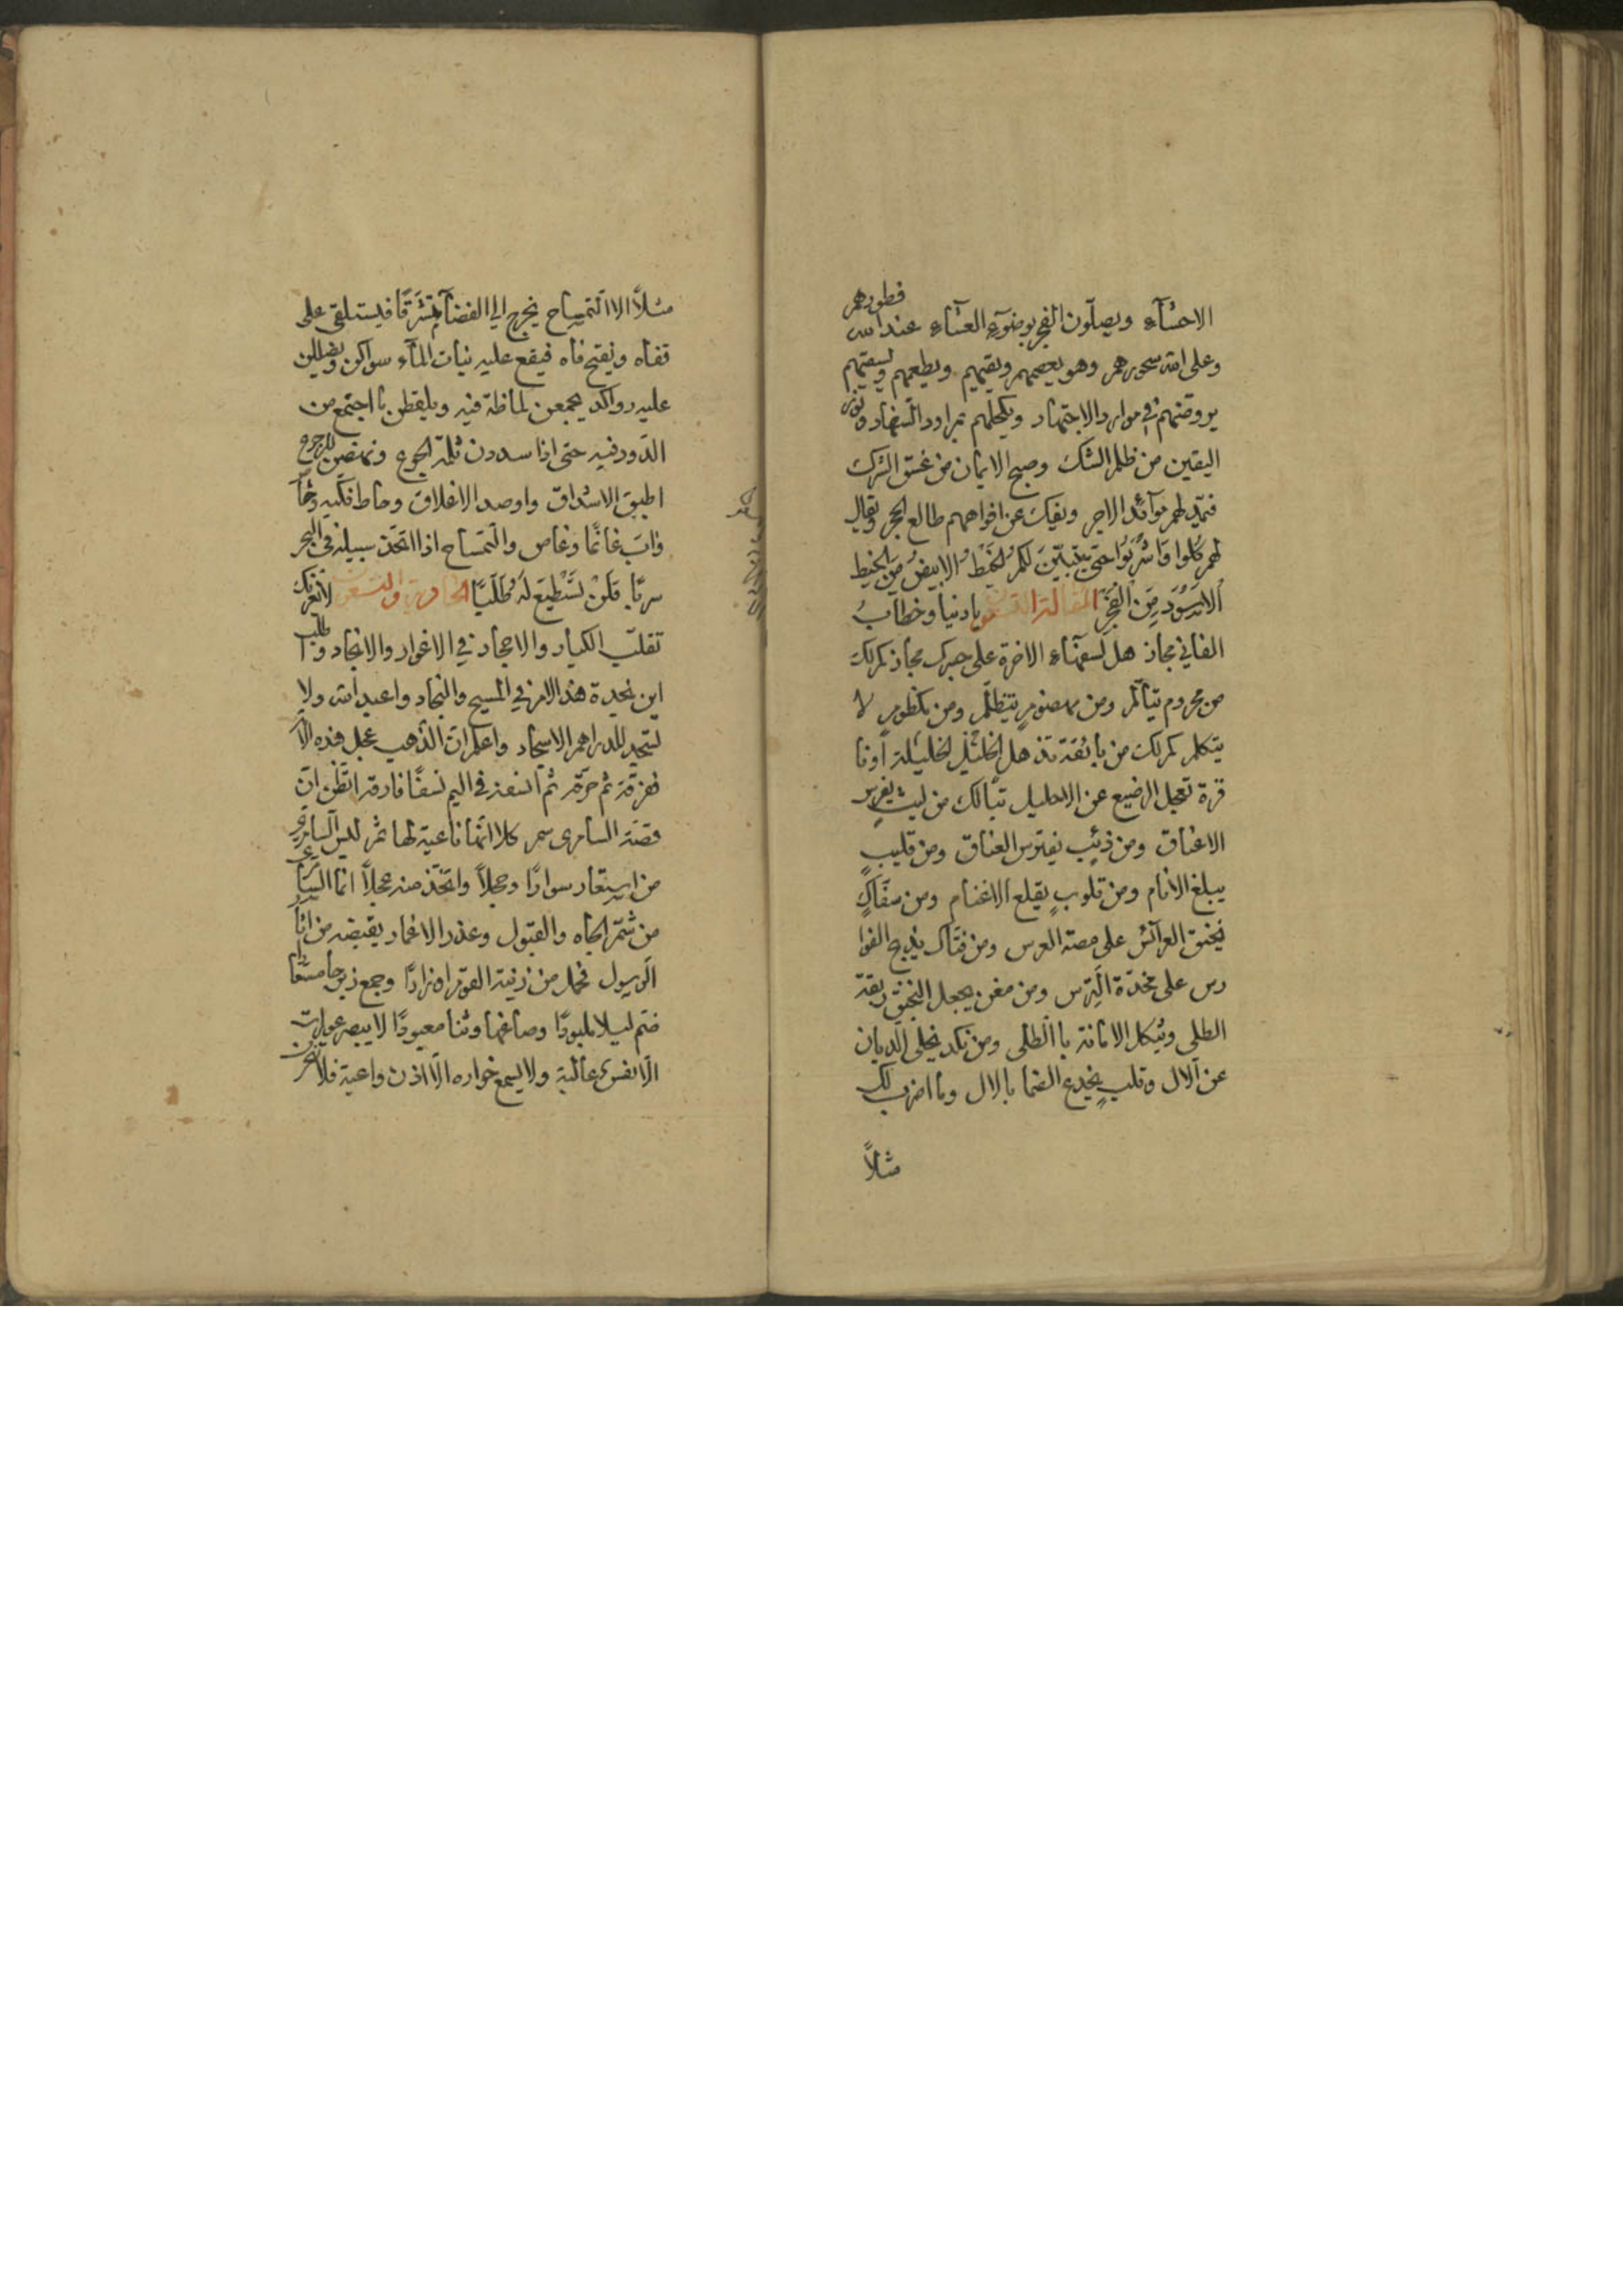 الاحشآء ويصلّون الفجر بوضوء العشاء عند الله فطورهم
وعلى الله سحورهم وهو يعصمهم ويقيهم ويطعمهم ويسقيهم
يروضهم في موارد الاجتهاد ويكحلهم بمراود السهاد ونور
اليقين من ظلم الشك وصبح الايمان من غسق الشرك
فتمد لهم موائد الاجر ويفيك عن افواههم طالع الحجر ويقال
لهم كُلُوا وَاشْرَبُوا حَتَّى يَتَبَيَّنَ لَكُمُ الْخَيْطُ الابيضُ مِنَ الخيط
الاسْوَدِ مِنَ الْفَجْرِ المقالة التسعون يا دنيا وخطابُ
الفاني مجاز هل لسفهاء الاخرة على جسرك مجاز كم لك
من محروم يتألم ومن مهضوم يتظلم ومن مكظوم لا
يتكلم كم لك من بائقة تذهل الخليل لخليلة او فا
قرة تعجل الرضيع عن الاحليل تبا لك من ليث يفرس
الاعناق ومن ذئب يفترس العناق ومن قليب
يبلع الانام ومن قلوب يقلع الاغنام ومن سفاك
يخنق العرائس على منصة العرس ومن فتاك يذبح الفوا
رس على مخدة الترس ومن مغن يجعل النجنق ربقة
الطلى ويثكل الامانة باالطلى ومن نكد يخلى الديان
عن الال وقلب يخدع الضما بالال وما اضرب لك
مثلاً
مثلاً الا التمساح يخرج الى الفضاء متشرقا فيستلقى على
قفاه ويفتح فاه فيقع عليه بنات الماء سواكن ويظللن
عليه رواكد يجمعن لماظة فيه ويلقطن ما اجتمع من
الدود فيه حتى اذا سددن ثلمة الجوع ونهضن للرجوع
اطبق الاشداق واوصد الاغلاق وحاط فكيه دغما
واب غانما وغاص والتمساح اذا اتخذ سبيله في البحر
سربا فَلَنْ تَسْتَطِيعَ لَهُ طَلَبًا الحادية والتسعون لا تغرنك
تقلب الكبار والاحجار في الاغوار والانجاد وطلب
ابن نجدة هذا الامر في المسيح والنجاد واعبد الله ولا
تستجد للدراهم الاسجاد واعلم ان الذهب عجل هذه الامة
فمزقه ثم حرقه ثم انسفه في اليم نسفا فارقه اتظن ان
قصة السامرى سمر كلا انما ناعية لها ثمر ليس السامرى
من استعار سوارا وحجلاً واتخذ منه عجلاً انما السامرى
من شتم الجاه والقبول وعذر الاغمار بقبضه من اثر
الرسول فحمل من زينة القوم اوزارا وجمع
فتم ليلا ملبودا وصاغها وثنا معبودا لا يبصر عواره
الا نفس عالية ولا يسمع خواره الا اذن واعية فلا